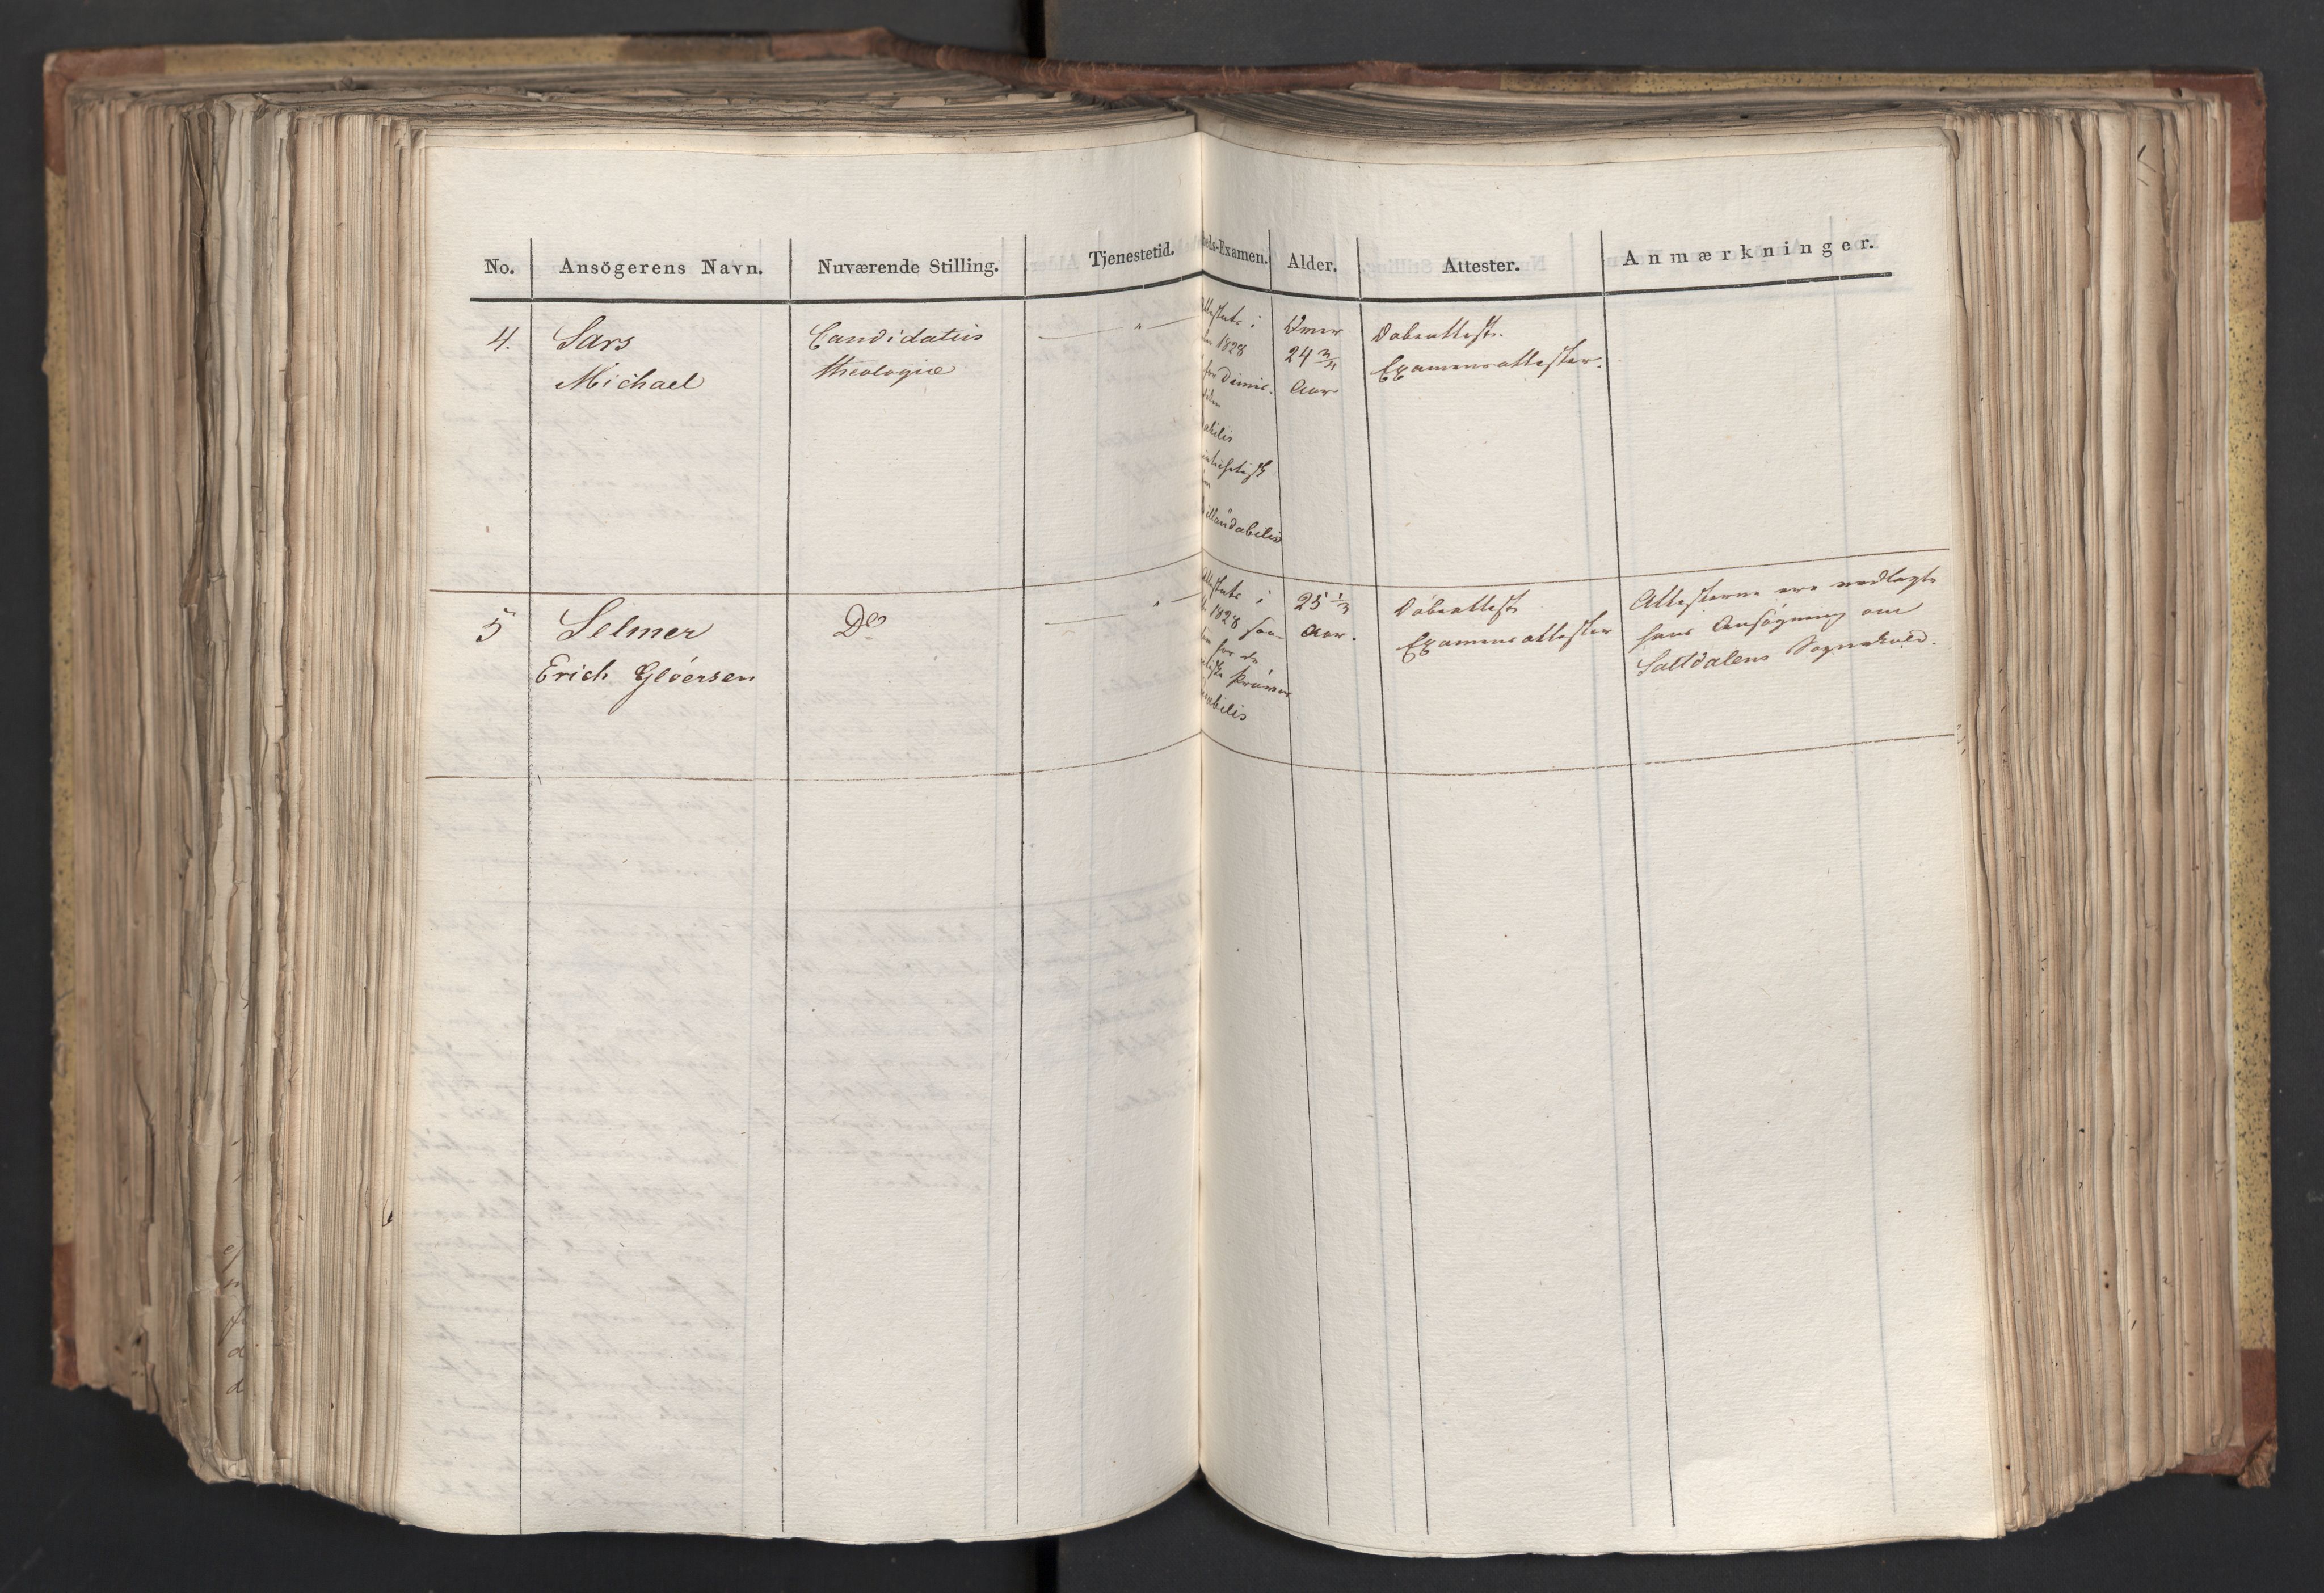 No. Ansögerens Navn. Nuværende Stilling. Tjenestetid. eds-Examen. Alder. Attester. Anmærkninger.
4. Sars
Michael
Candidatus
theologiæ
"
i
1828
for Dimis-
abilis
illaudabilis
24 3/4
Aar
Döbeattest.
Examensattester.
5 Selmer
Erich Gløersen
Do
"
i
1828
for de
Prøver
abilis
25 1/3
Aar.
Döbeattest
Examensattester
Attesterne ere vedlagte
hans Ansögning om
Saltdalens Sognekald.